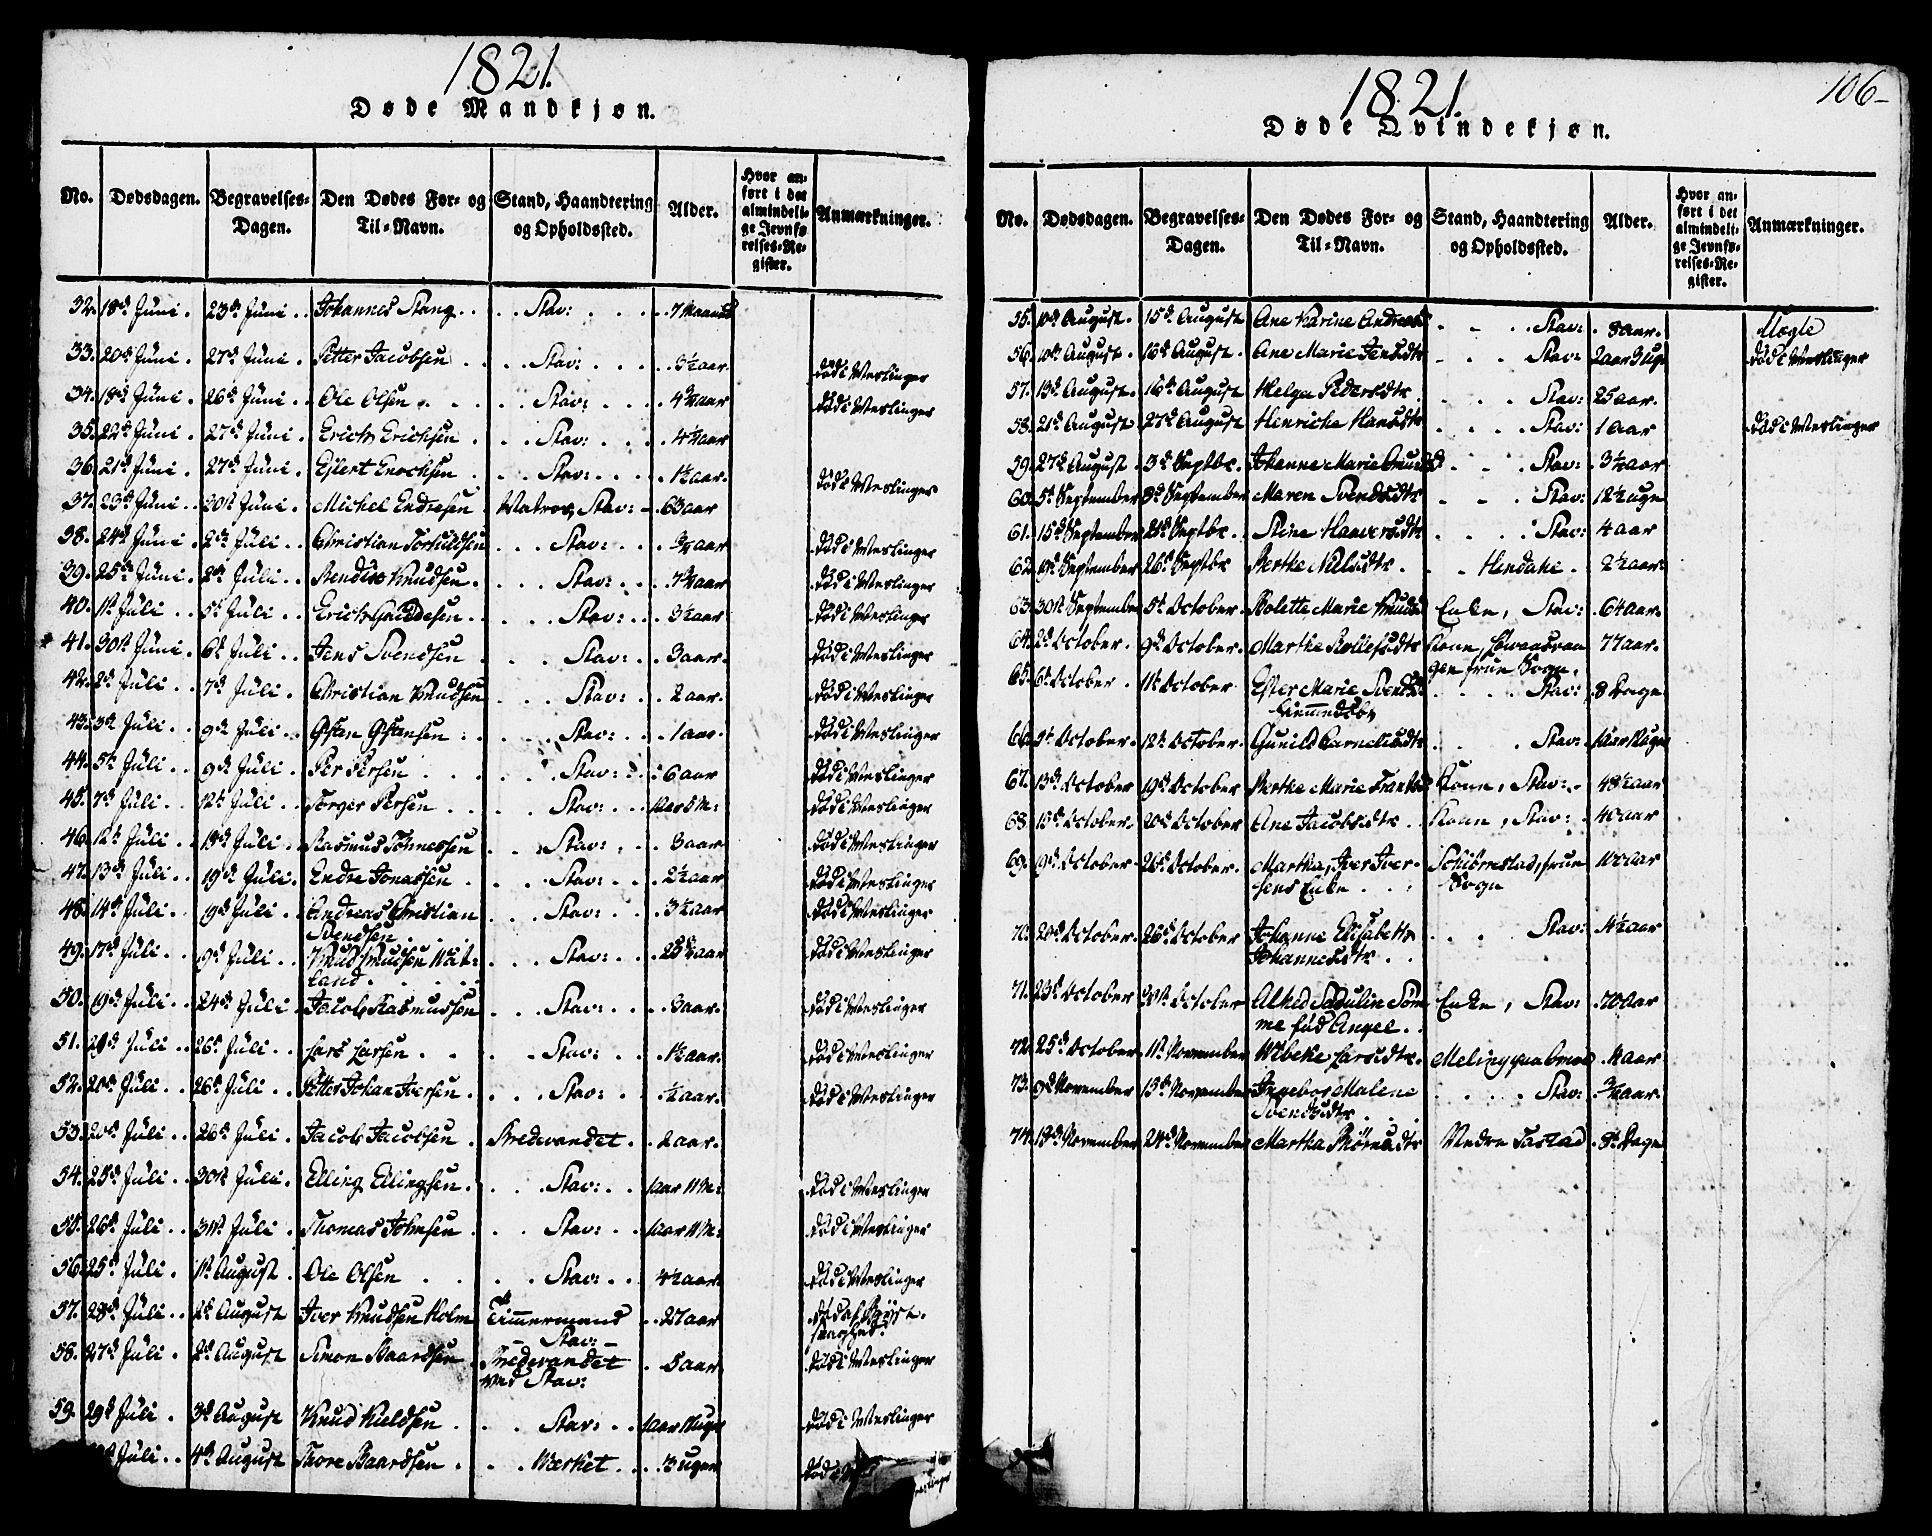 1821.
Døde Mandkjøn.
No. Dødsdagen. Begravelses-Dagen. Den Dødes For- og Til-Navn. Stand, Haandtering og Opholdssted. Alder. Hvor anført i det almindelige Jevnførelses-Register. Anmærkninger.
32. 18de Juni. 23de Juni. Johannes Stang. Stav:
33. 20de Juni. 27de Juni. Petter Jacobsen Stav: 3½ aar. død i Meslinger
34. 18de Juni. 26de Juni. Ole Olsen Stav: død i Meslinger
35. 22de Juni. 27de Juni. Erich Erichsen Stav:
36. 21de Juni. 27de Juni. Ejlert Enochsen Stav: 1½ aar. død i Meslinger
37. 23de Juni. 30te Juni. Michel Endresen Matros, Stav: 63 aar
38. 24de Juni. 2den Juli. Christian Stav: død i Meslinger
39. 25de Juni. 2den Juli. Knudsen. Stav: død i Meslinger
40. 1ste Juli. 5te Juli. Erich Stav: 3½ aar død i Meslinger
41. 30te Juni. 6te Juli. Jens Svendsen Stav: 3 aar. død i Meslinger
42. 2den Juli. 7de Juli. Christian Knudsen Stav: 2 aar. død i Meslinger
43. 3die Juli. 9de Juli. Østen Østensen Stav: 1 aar. død i Meslinger
44. 5te Juli. 9de Juli. Per Persen Stav: 6 aar død i Meslinger
45. 7de Juli. 12te Juli. Torger Persen Stav: død i Meslinger
46. 12te Juli. Juli. Rasmus Tønnessen Stav: 3 aar død i Meslinger
47. 13de Juli. 19de Juli. Endre Jonassen Stav: 2½ aar død i Meslinger
48. 14de Juli. 19de Juli. Andreas Christian Svendsen Stav: 3½ aar død i Meslinger
49. 17de Juli. 19de Juli. Knud Knudsen Watland. Stav: død i Meslinger
50. 19de Juli. 24de Juli. Jacob Rasmussen Stav: 3 aar. død i Meslinger
51. Juli. 26de Juli. Lars Larsen Stav: 1½ aar. død i Meslinger
52. 20de Juli. 26de Juli. Petter Johan Iversen. Stav: ½ aar. død i Meslinger
53. 20de Juli. 26de Juli. Jacob Jacobsen Bredevandet. 2 aar.
54. 25de Juli. 30te Juli. Elling Ellingsen. Stav: 1 aar 11 M: død i Meslinger
55. 26de Juli. 31te Juli. Thomas Johnsen Stav: 1 aar 11 M: død i Meslinger
56. 25de Juli. 1ste August. Ole Olsen Stav: 4½ aar. død i Meslinger
57. 28de Juli. 2den August Iver Knudsen Holm Tømmermand Stav: 27 aar død af Bryst-
58. 27de Juli. 2den August Simon Baardsen Bredevandet ved Stav: 5 aar død i Meslinger
59. 29de Juli. 3die August Knud Kieldsen Stav: død i Meslinger
Juli. 4de August Thore Baardsen Wærket. 13 uger død i Meslinger
1821.
106
Døde Qvindekjøn.
No. Dødsdagen. Begravelses-Dagen. Den Dødes For- og Til-Navn. Stand, Haandtering og Opholdssted. Alder. Hvor anført i det almindelige Jevnførelses-Register. Anmærkninger.
55. 10de August. 15de August Ane Karine Stav:
56. 10de August. 16de August. Ane Marie Jensdtr Stav: 2 aar 3 uger død i Meslinger
57. 13de August. 16de August Helga Pedersdtr Stav: 25 aar.
58. 21de August. 27de August Henriche Hansdtr Stav: 1 aar død i Meslinger
59. 27de August. 3die Septbr. Johanne Marie Stav: 3½ aar
60. 5te September 8de September Maren Svendsdtr Stav: 12½ uge
61. 15de September Septbr. Stine Haaversdtr Stav: 4 aar
62. 19de September 26de Septbr Berthe Nilsdtr. 2½ aar.
63. 30te September 5te October. Bolette Marie Enke, Stav: 64 aar.
64. 2den October. 9de October. Marthe Kone, Sogn. 77 aar.
65. 6te October. 11te October Ester Marie Stav: 8 Dage
66. October. 12te October. Gunild Cornelisdtr Stav:
67. 13de October 19de October Berthe Marie Kone, Stav: 48½ aar
68. 15de October. 20de October Ane Jacobsdtr. Kone, Stav: 40 aar
69. 19de October 26de October. Martha, Iver Iversens Enke Sogn
70. 20de October. 26de October Johanne Elisabeth Johannesdtr. Stav: 4½ aar
71. 23de October 31te October Sømme fød Angel. Enke, Stav: 70 aar
72. 25de October. November Wibeke Larsdtr. Meling
73. 9de November 13de November Ingebor Malene Svendsdtr. Stav: ¾ aar.
74. 18de November 24de November Martha Biørnsdtr Nedre Tastad 8te Dage